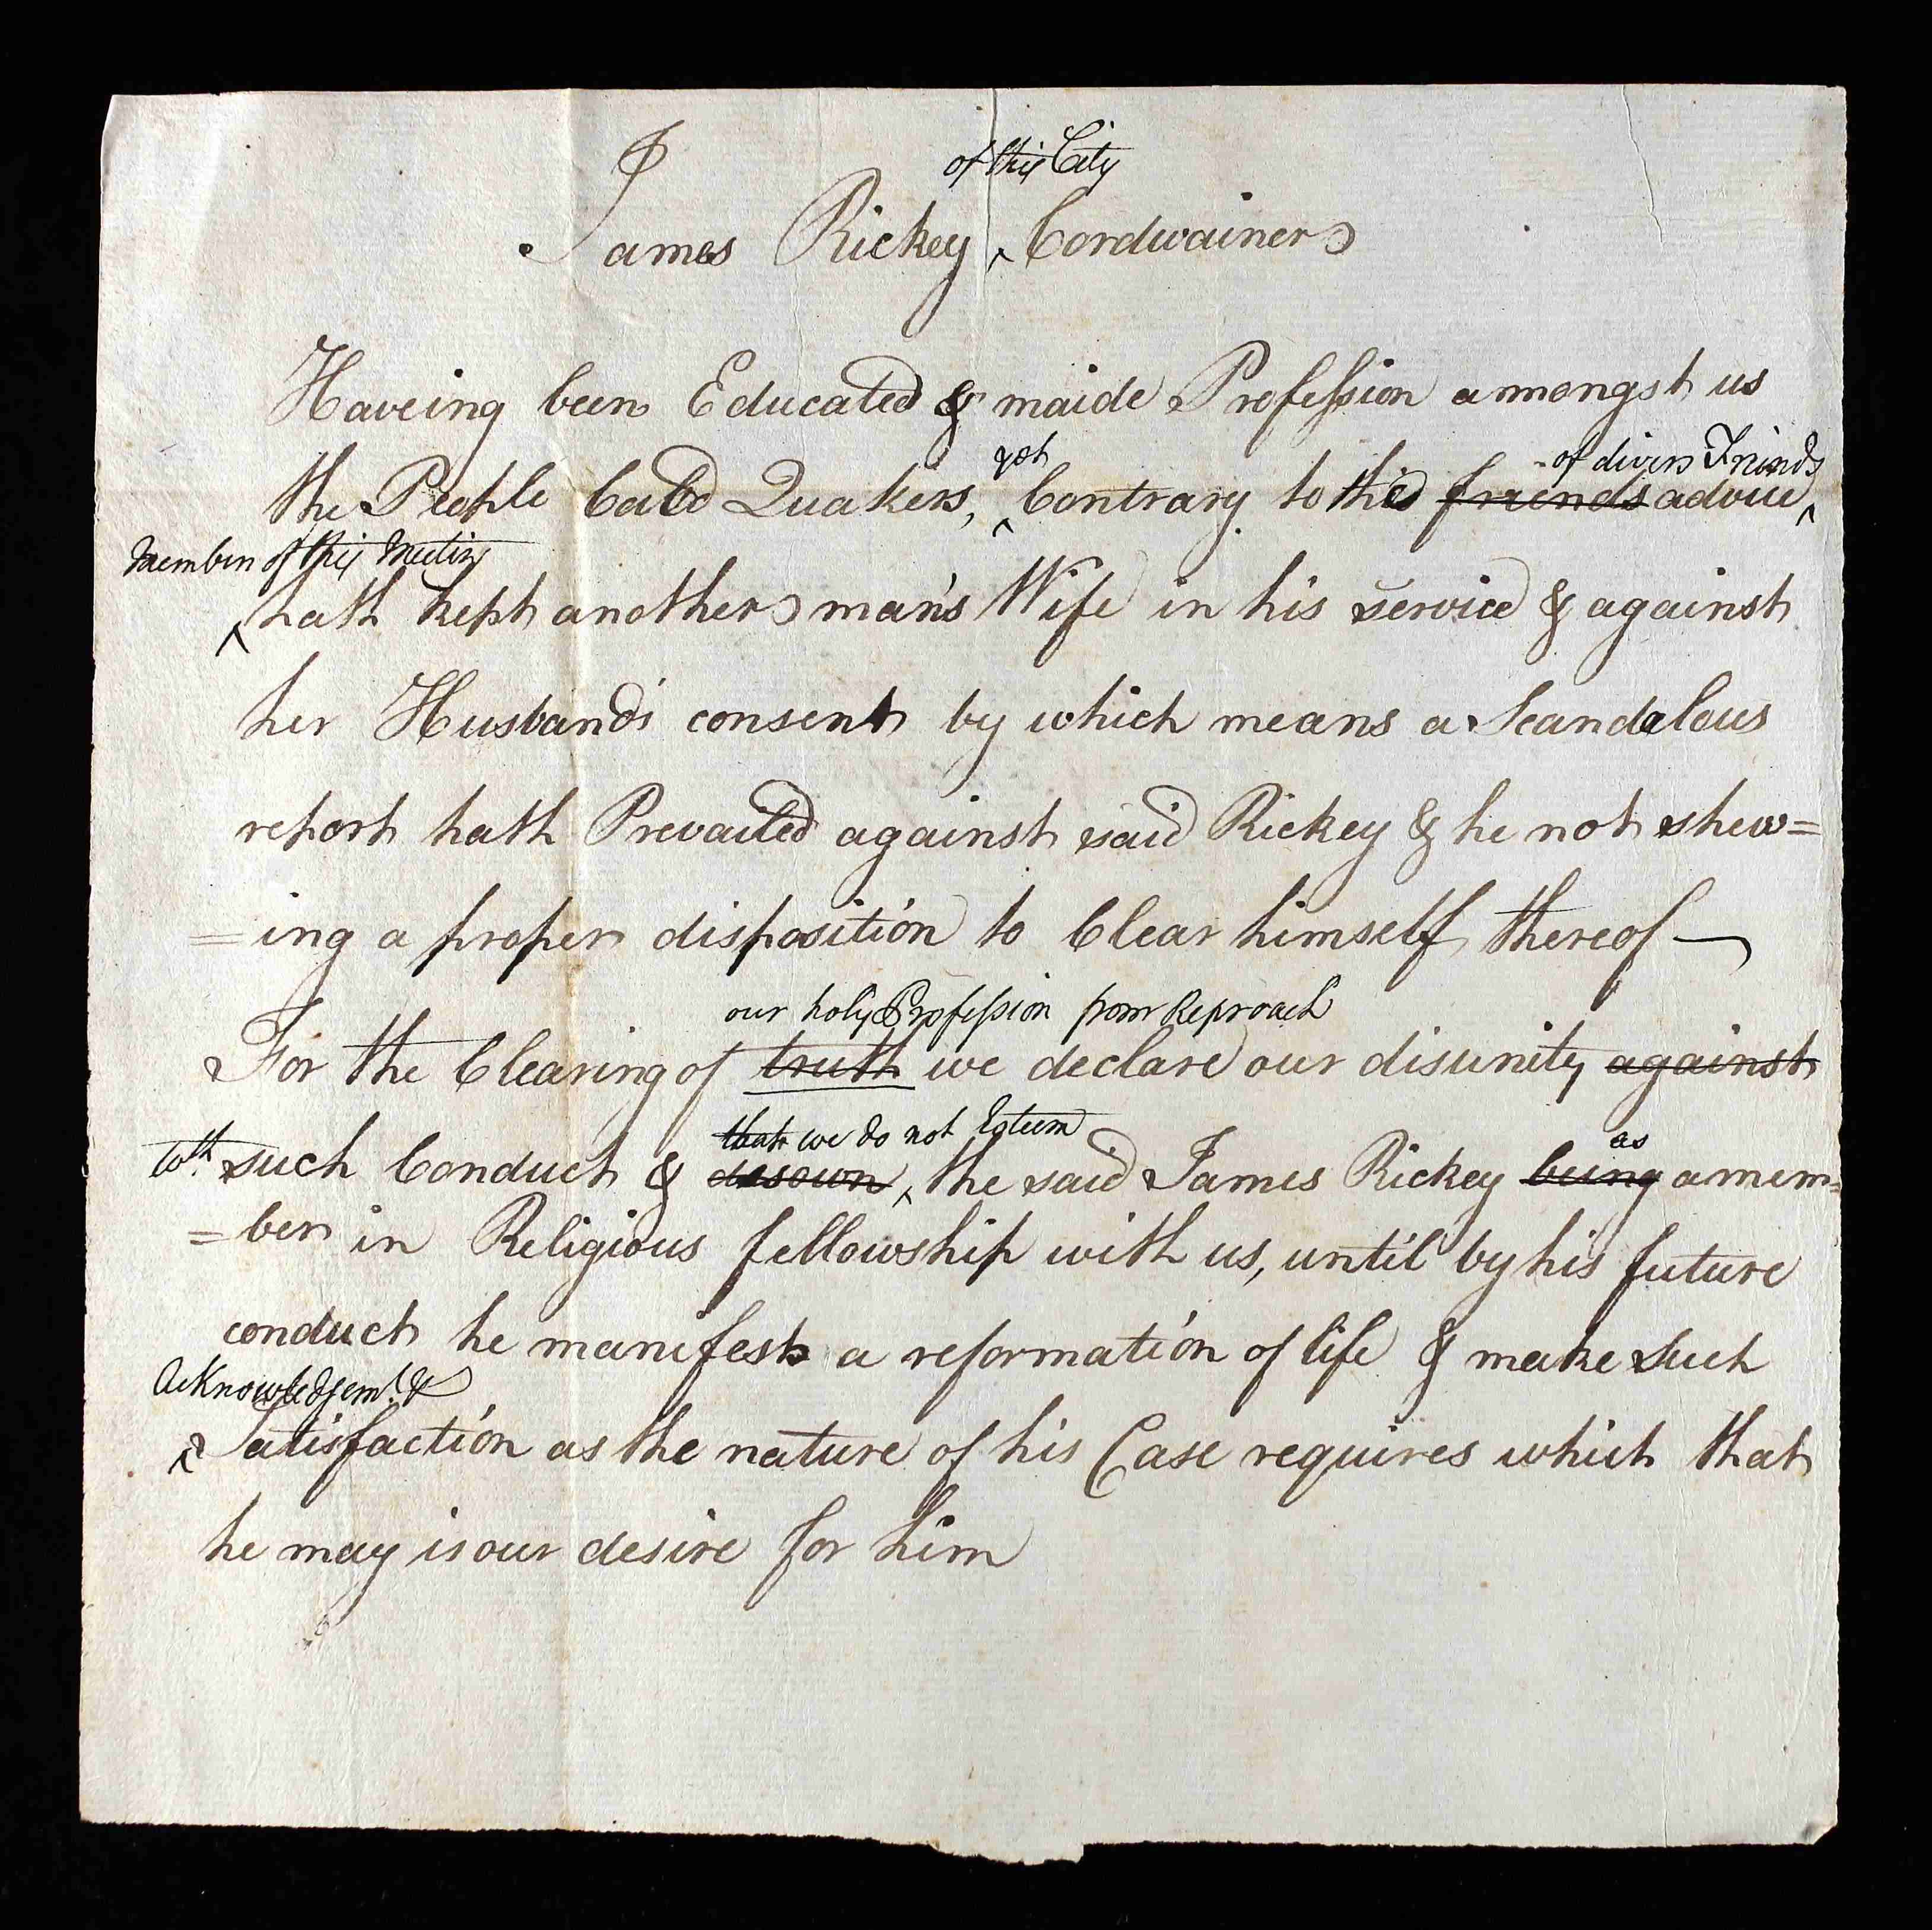 of this City
James Rickey ^ Cordwainer
Haveing been Educated & maide Profession amongst us
yet of divers Friends
the People Caled Quakers, ^ Contrary to the friends advice ^
Members of this Meeting
^ hath kept another man's Wife in his service & against
her Husband's consent by which means a Scandalous
report hath Prevailed against said Rickey & he not shew=
=ing a proper disposition to Clear himself thereof —
our holy Profession from Reproach
For the Clearing of truth we declare our disunity against
that we do not Esteem as
wth. such Conduct & desown ^ the said James Rickey being a mem=
=ber in Religious fellowship with us, until by his future
conduct he manifest a reformation of life & make such
Acknowledgemt. &
^ Satisfaction as the nature of his Case requires which that
he may is our desire for him